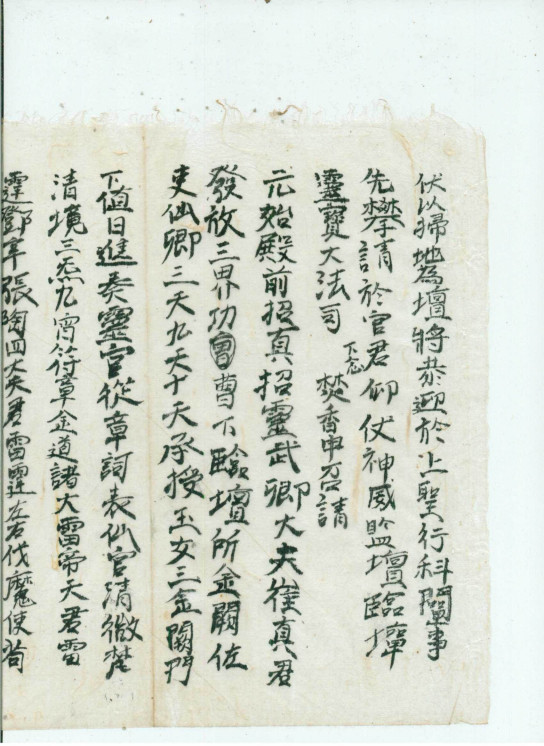 伏以掃地為壇將恭迎於上聖行科闡事
先攀請於官君仰仗神威監壇臨壇
靈寶大法司 下忘 焚香申召請
元始殿前招真招靈武卿大夫崔真君
發放三界功曹曹下臨壇所金闕佐
吏仙卿三天九天十天承授玉女三金闕門
下值日進奏靈官從章詞表仙官清微楚
清境三炁九霄符章金道諸大雷帝天君雷
霆鄧辛張陶四大天君雷霆左右伐魔使苟